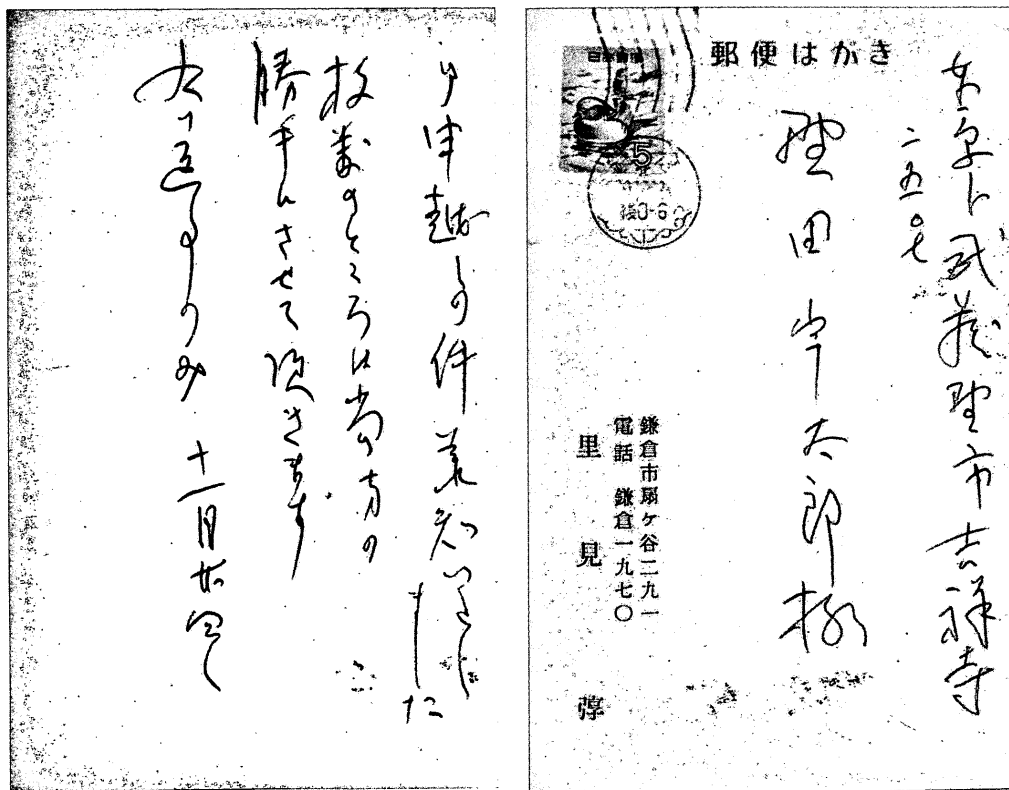 郵便はがき
東京都武蔵野市吉祥寺
二五〇七
野田宇太郎様
鎌倉市扇ヶ谷二九一
電話 鎌倉一九七〇
里見弴
日本郵便
5
御申越しの件承知いたしました
枚数のところは当方の
勝手にさせて頂きます
右御返事のみ 十一月廿四日